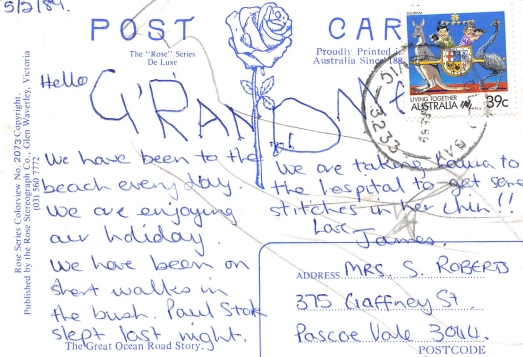 5/2/89.
POST CARD
The "Rose" Series
De Luxe
Proudly Printed in
Australia Since 188
TOURISM
LIVING TOGETHER
AUSTRALIA 39c
3233
Hello GRANDMA
We have been to the
beach everyday.
We are enjoying
our holiday.
We have been on
short walks in
the bush. Paul
slept last night.
The Great Ocean Road Story.
We are taking
to
the hospital to get some
stitches in her chin!!
Love
James.
ADDRESS MRS. S. ROBERTS
375 Gaffney St.
Pascoe Vale 3044.
POSTCODE
Rose Series Colorview No. 2073 Copyright.
Published by the Rose Stereograph Co., Glen Waverley, Victoria
(03) 560 7772